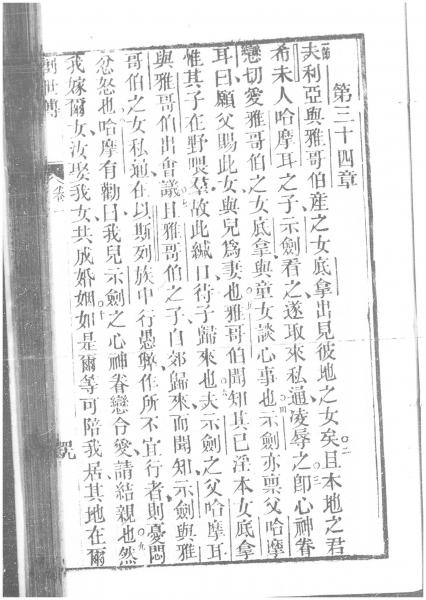 第三十四章
一節 夫利亞與雅哥伯産之女底拿出見彼地之女矣○二且本地之君
希未人哈摩耳之子示劍看之遂取來私通凌辱之○三卽心神眷
戀切愛雅哥伯之女底拿與童女談心事也○四示劍亦禀父哈摩
耳曰願父賜此女與兒爲妻也○五雅哥伯聞知其已淫本女底拿
惟其子在野喂羣故此緘口待子歸來也○六夫示劍之父哈摩耳
與雅哥伯出會議○七且雅哥伯之子自郊歸來而聞知示劍與雅
哥伯之女私通在以斯列族中行愚弊作所不宜行者則憂悶
忿怒也○八哈摩有勸曰我兒示劍之心神眷戀合愛請結親也○九然
我嫁爾女汝娶我女共成婚姻○十如是爾等可陪我居其地在爾
創世傳